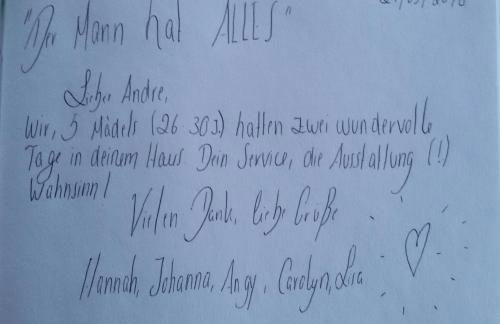 "Der Mann hat ALLES"
Lieber Andre,
Wir, 5 Mädels (26-30J.) hatten zwei wundervolle
Tage in deinem Haus. Dein Service, die Ausstattung (!)
Wahnsinn!
Vielen Dank, liebe Grüße
Hannah, Johanna, Angy, Carolyn, Lisa